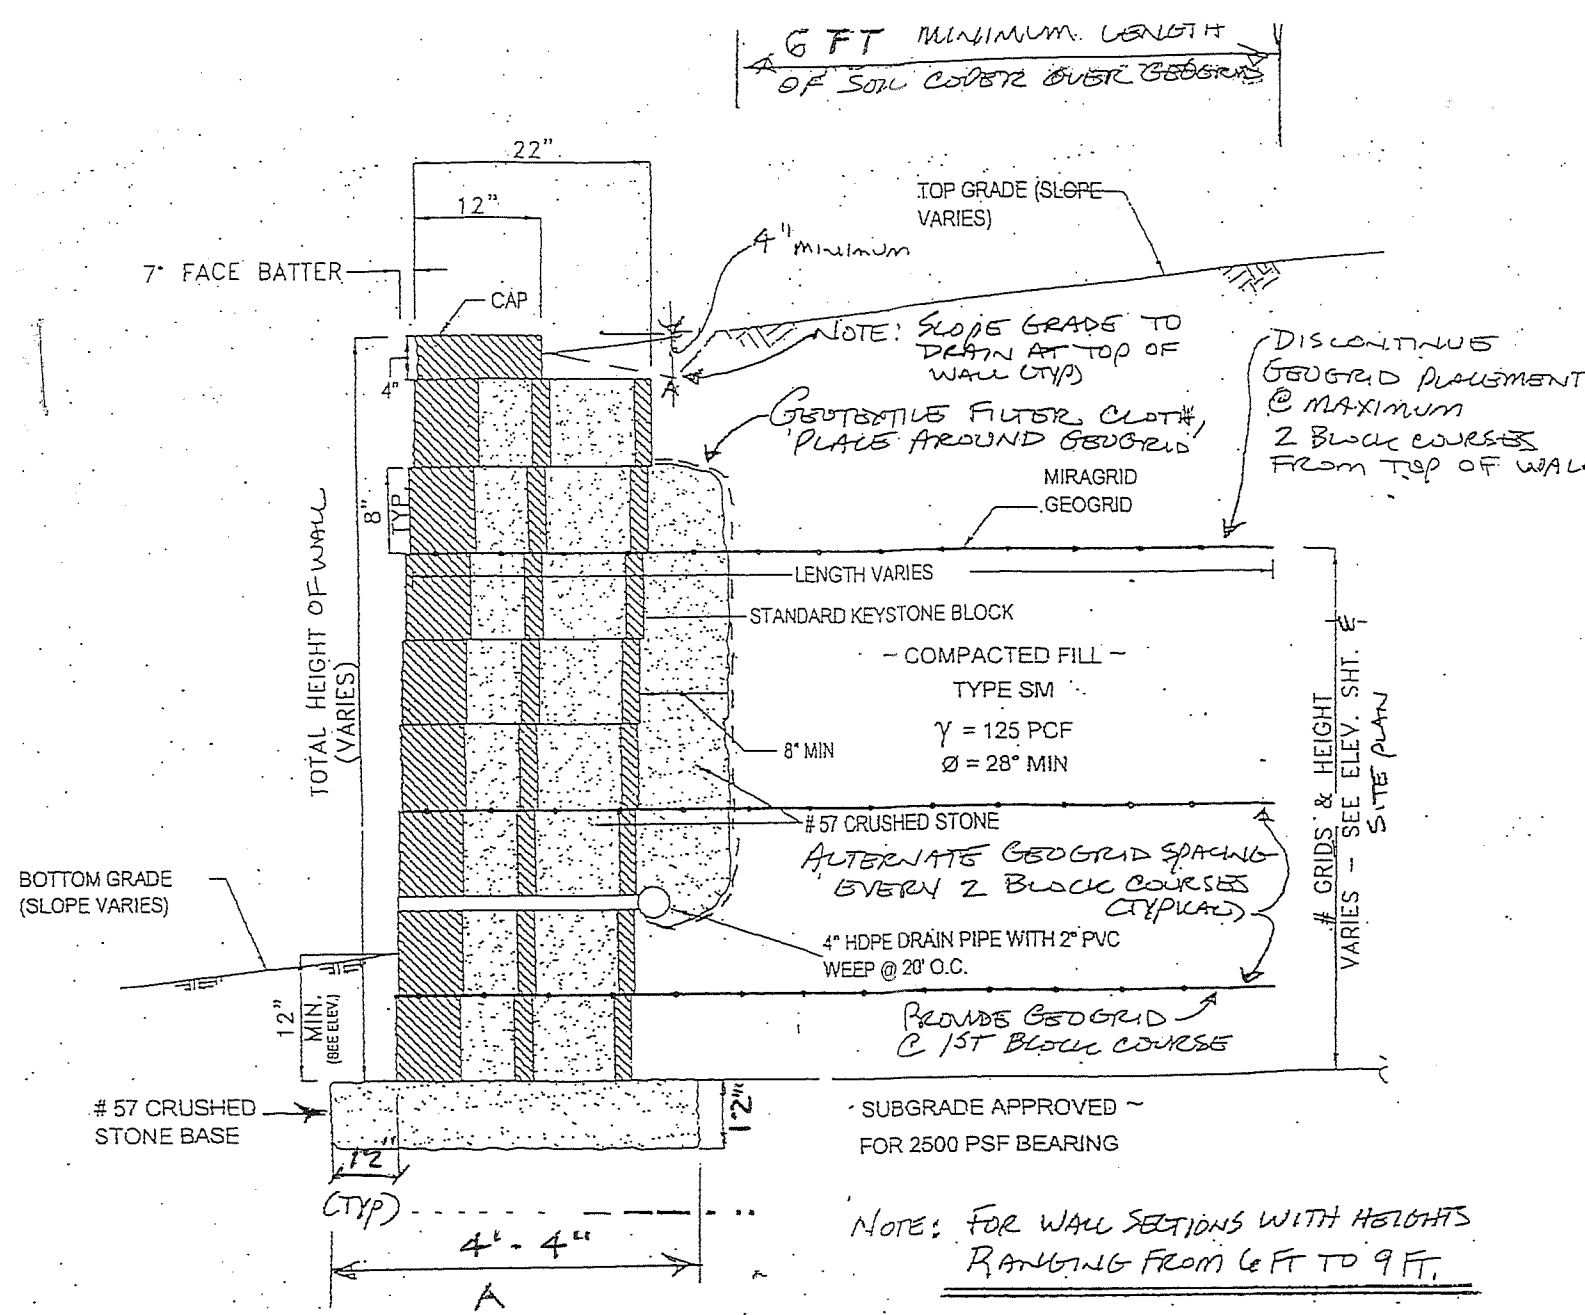 6 FT MINIMUM LENGTH
OF SOIL COVER OVER GEOGRID
22"
12"
TOP GRADE (SLOPE
VARIES)
4" MINIMUM
7° FACE BATTER
CAP
4"
NOTE: SLOPE GRADE TO
DRAIN AT TOP OF
WALL (TYP)
A
DISCONTINUE
GEOGRID PLACEMENT
@ MAXIMUM
2 BLOCK COURSES
FROM TOP OF WALL
GEOTEXTILE FILTER CLOTH,
PLACE AROUND GEOGRID
8"
TYP
MIRAGRID
GEOGRID
LENGTH VARIES
STANDARD KEYSTONE BLOCK
~ COMPACTED FILL ~
TYPE SM
γ = 125 PCF
Ø = 28° MIN
8" MIN
TOTAL HEIGHT OF WALL
(VARIES)
# 57 CRUSHED STONE
ALTERNATE GEOGRID SPACING
EVERY 2 BLOCK COURSES
(TYPICAL)
# GRIDS & HEIGHT
VARIES - SEE ELEV. SHT. &
SITE PLAN
BOTTOM GRADE
(SLOPE VARIES)
4" HDPE DRAIN PIPE WITH 2" PVC
WEEP @ 20' O.C.
12"
MIN.
(SEE ELEV.)
PROVIDE GEOGRID
@ 1ST BLOCK COURSE
# 57 CRUSHED
STONE BASE
12"
~ SUBGRADE APPROVED ~
FOR 2500 PSF BEARING
12"
(TYP)
4'-4"
A
NOTE: FOR WALL SECTIONS WITH HEIGHTS
RANGING FROM 6 FT TO 9 FT.